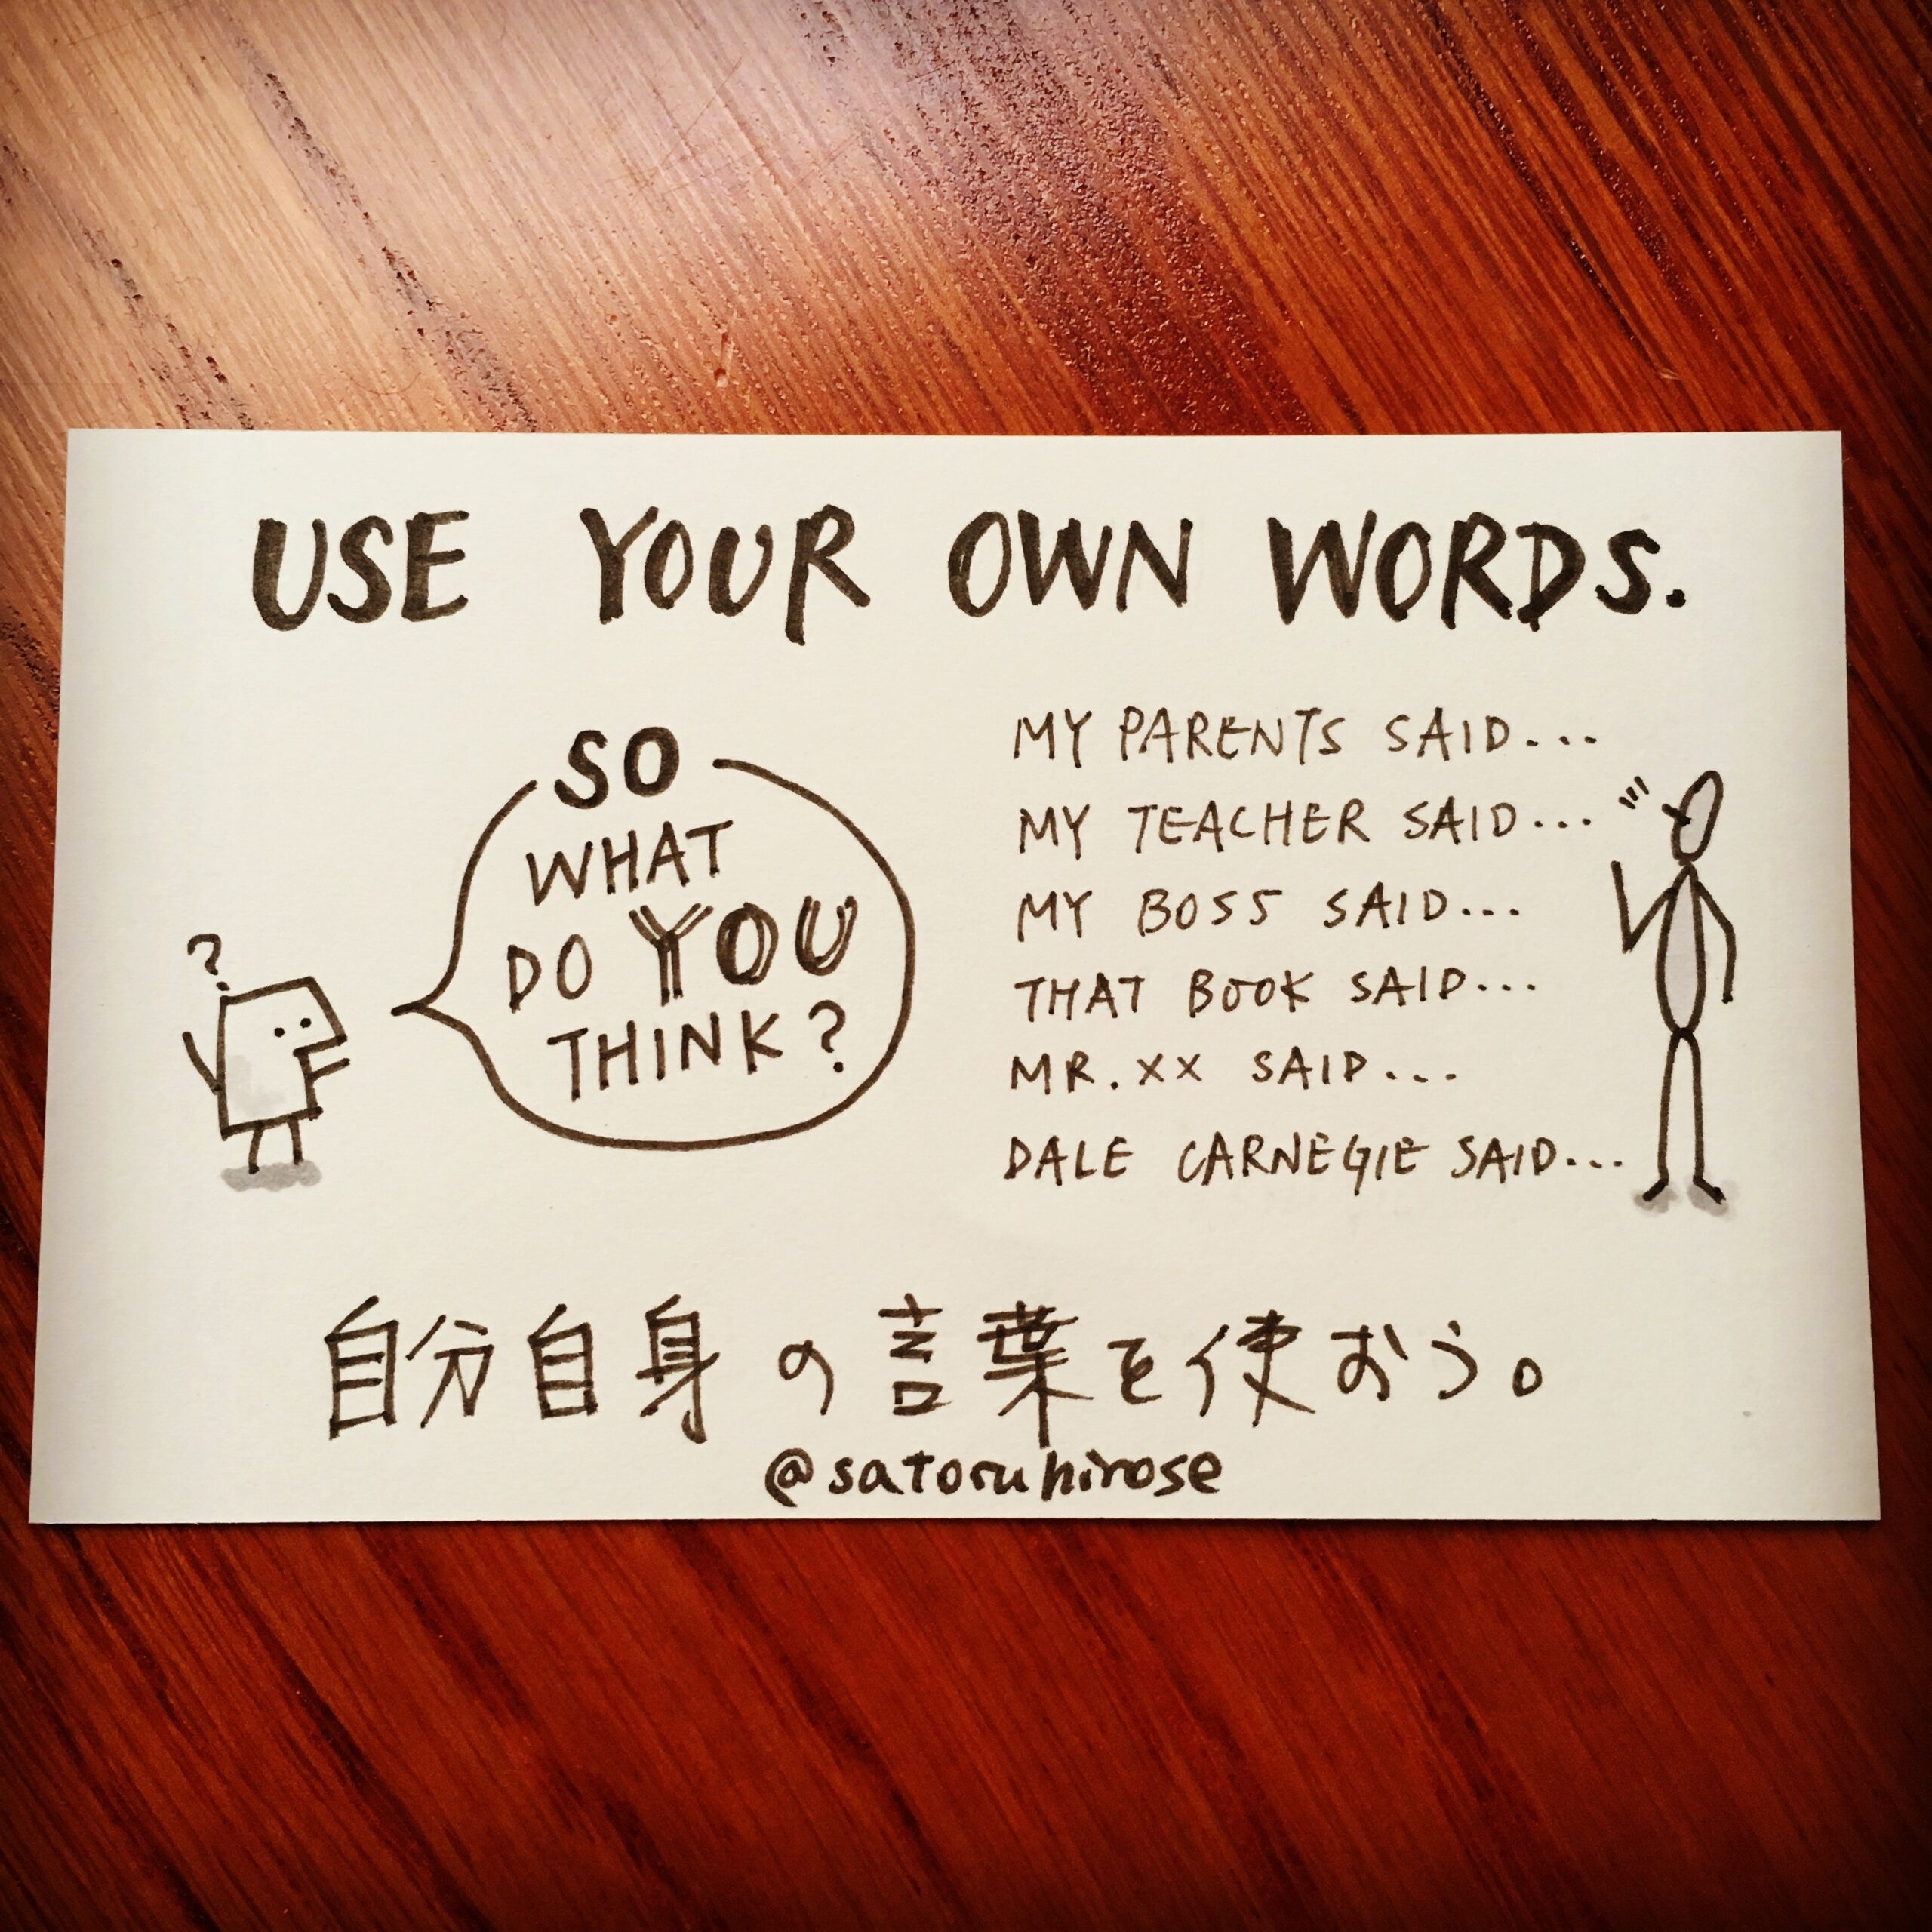 USE YOUR OWN WORDS.
?
SO
WHAT
DO YOU
THINK?
MY PARENTS SAID...
MY TEACHER SAID...
MY BOSS SAID...
THAT BOOK SAID...
MR. XX SAID...
DALE CARNEGIE SAID...
自分自身の言葉を使おう。
@satoruhirose